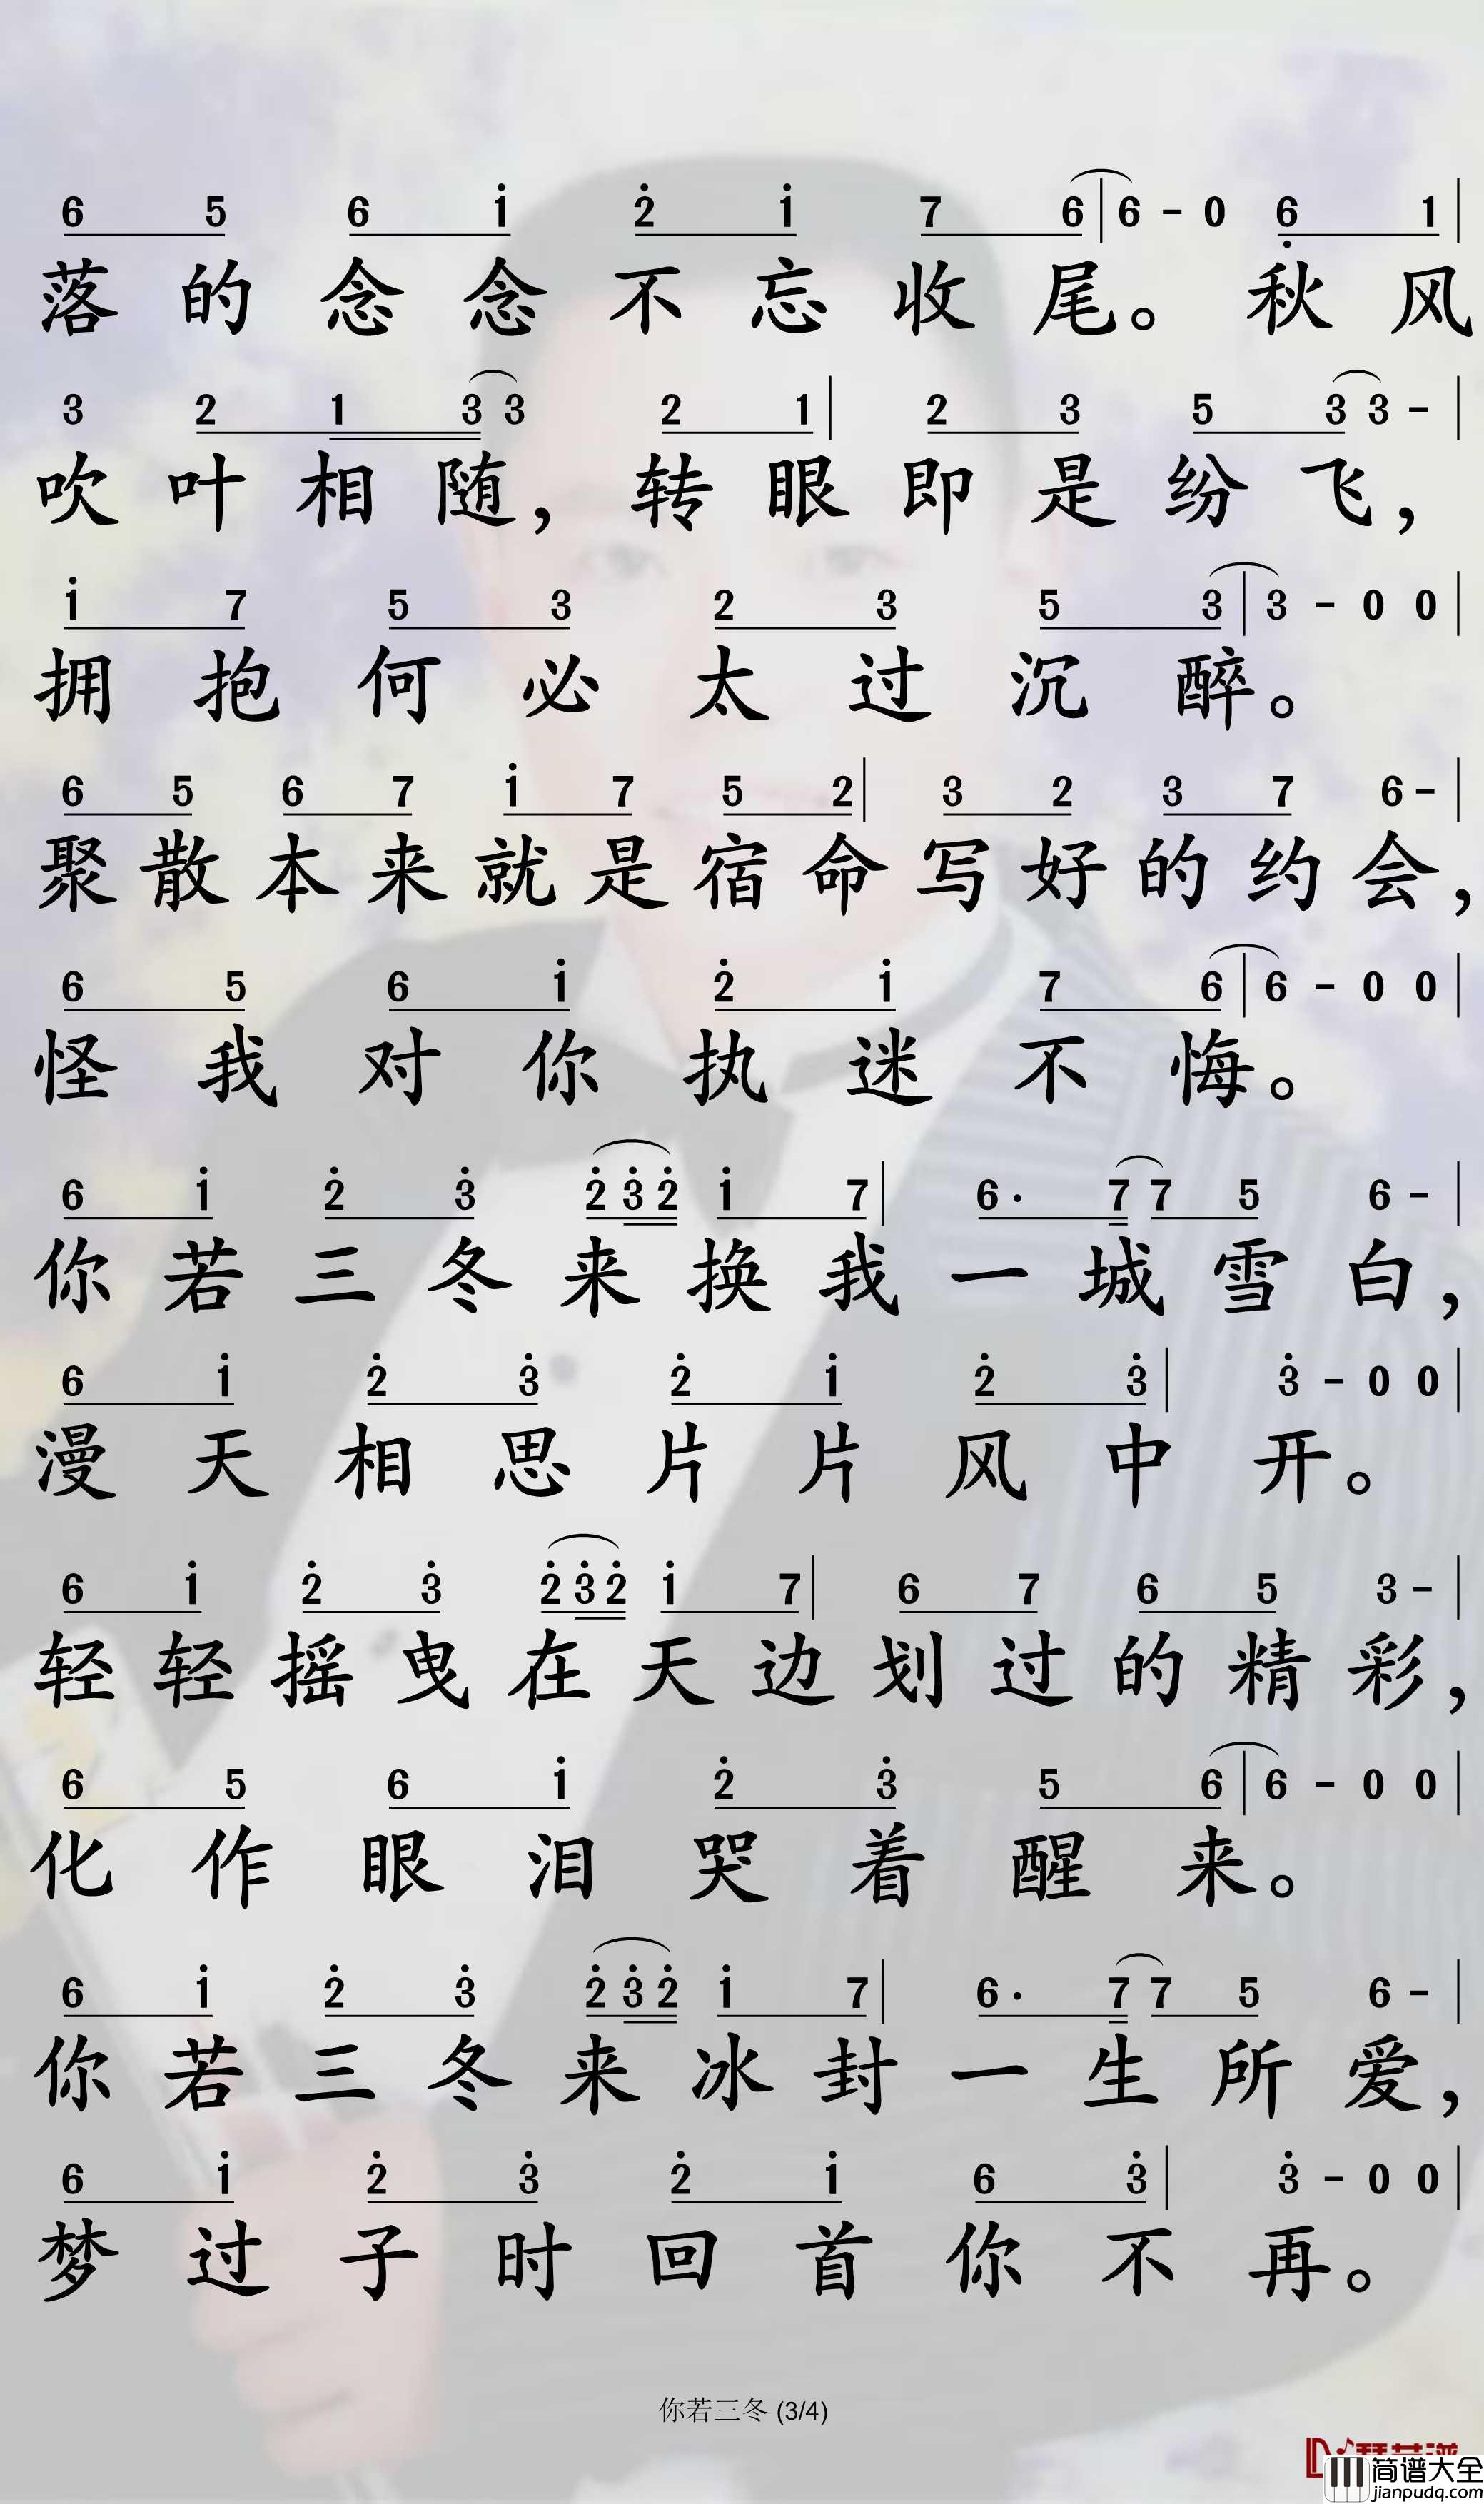 6 5 6 i 2̇ i 7 6 | 6 - 0 6̣ 1 |
落的念念不忘收尾。秋风
3 2 1 3 3 2 1 | 2 3 5 3 3 - |
吹叶相随，转眼即是纷飞，
i 7 5 3 2 3 5 3 | 3 - 0 0 |
拥抱何必太过沉醉。
6 5 6 7 i 7 5 2 | 3 2 3 7 6 - |
聚散本来就是宿命写好的约会，
6 5 6 i 2̇ i 7 6 | 6 - 0 0 |
怪我对你执迷不悔。
6 i 2̇ 3̇ 2̇ 3̇ 2̇ i 7 | 6· 7 7 5 6 - |
你若三冬来换我一城雪白，
6 i 2̇ 3̇ 2̇ i 2̇ 3̇ | 3̇ - 0 0 |
漫天相思片片风中开。
6 i 2̇ 3̇ 2̇ 3̇ 2̇ i 7 | 6 7 6 5 3 - |
轻轻摇曳在天边划过的精彩，
6 5 6 i 2̇ 3̇ 5 6 | 6 - 0 0 |
化作眼泪哭着醒来。
6 i 2̇ 3̇ 2̇ 3̇ 2̇ i 7 | 6· 7 7 5 6 - |
你若三冬来冰封一生所爱，
6 i 2̇ 3̇ 2̇ i 6 3̇ | 3̇ - 0 0 |
梦过子时回首你不再。
你若三冬 (3/4)
简谱大全
jianpudq.com